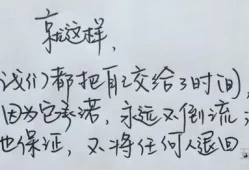 就这样，
我们都把自己交给了时间，
因为它承诺，永远不倒流；
也保证，不将任何人退回